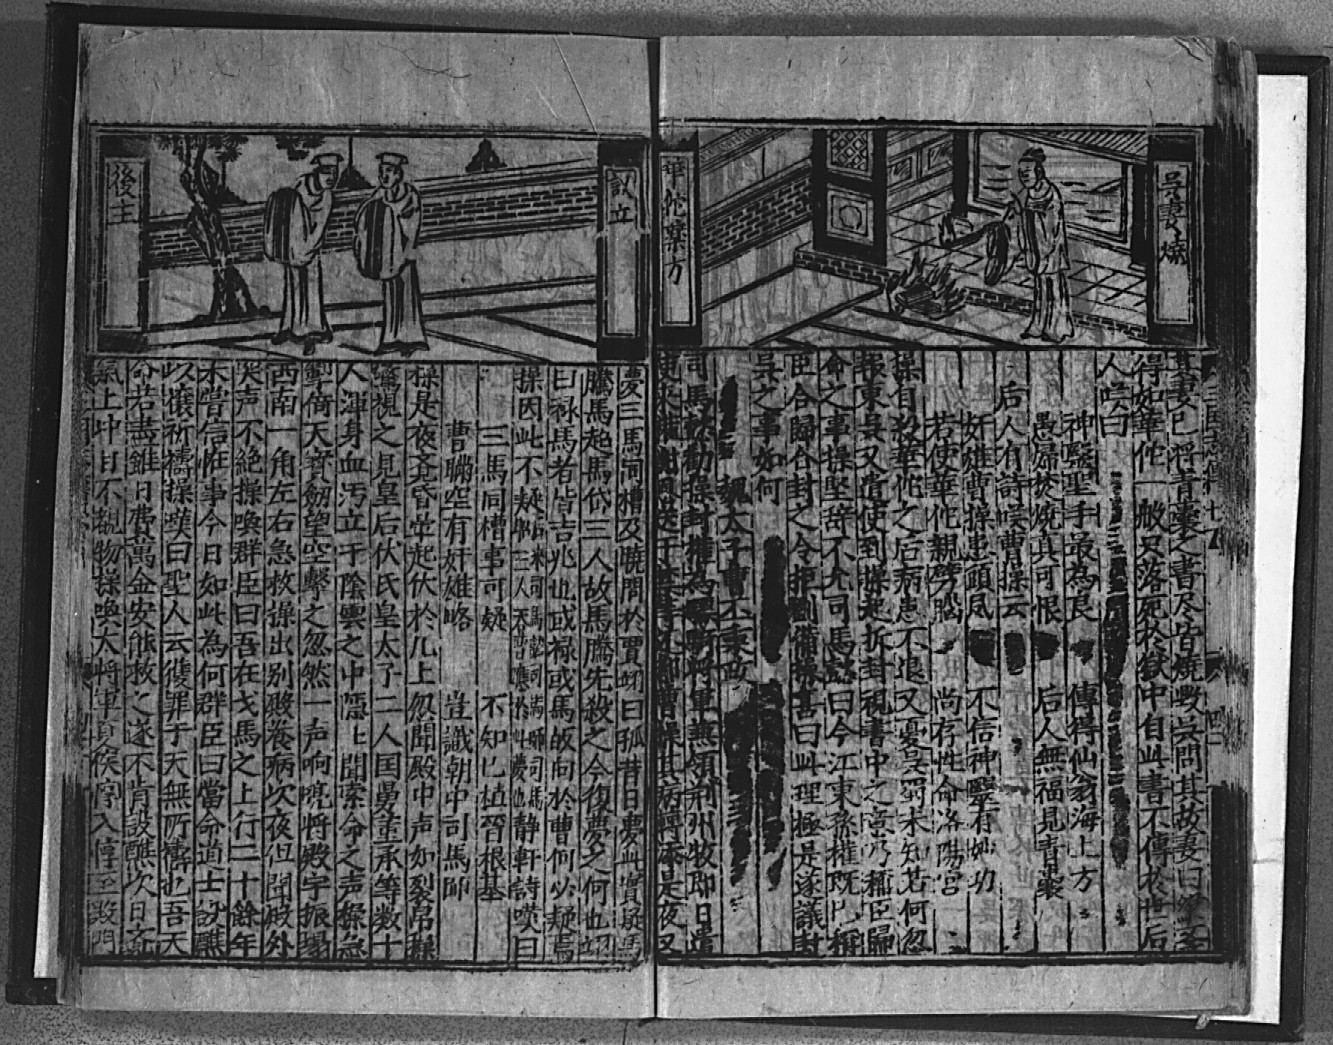 吳妻燒
華佗藥方
其妻已將青囊之書尽皆燒毀吳問其故妻曰
得如華佗一般只落死於獄中自此書不傳於世后
人嘆曰
神醫聖手最為良　傳得仙翁海上方
愚婦於燒真可恨　后人無福見青囊
后人有詩嘆曹操云
奸雄曹操患頭風　不信神醫有妙功
若使華佗親劈腦　尚存性命洛陽宮
操有殺華佗之后病患不退又憂吳蜀未知若何忽
報東吳又遣使到操起拆封視書中之意乃稱臣歸
命之事操堅辞不允司馬懿曰今江東孫權既已稱
臣合歸合封之令拒劉備操喜曰此理極是遂議封
吳之事如何
魏太子曹丕秉政
司馬懿勸操封權為驃騎將軍兼領荊州牧即日遣
使東吳曹操其病轉添是夜又
設立
後主
夢三馬同槽及曉問於賈詡曰孤昔日夢此實疑馬
騰馬起馬岱三人故馬騰先殺之今復夢之何也詡
曰禄馬者皆吉兆也或禄或馬故向於曹何必疑焉
操因此不疑 靜軒詩嘆曰
三馬同槽事可疑　不知已植晉根基
曹瞞空有奸雄略　豈識朝中司馬師
操是夜天昏坐起伏於几上忽聞殿中声如裂帛操
驚視之見皇后伏氏皇太子二人国舅董承等数十
人渾身血污立于陰雲之中隱上聞索命之声操急
掣倚天宝劍望空擊之忽然一声响喨將殿宇振塌
西南一角左右急救操出別殿養病次夜但聞殿外
哭声不絕操喚群臣曰吾在戈馬之上行二十餘年
未嘗信怪事今日如此為何群臣曰當命道士設醮
以禳祈禱操嘆曰聖人云獲罪于天無所禱也吾天
命若盡雖日費萬金安能救之遂不肯設醮次日
氣上冲目不覩物操喚大將軍夏侯惇入惇至殿門